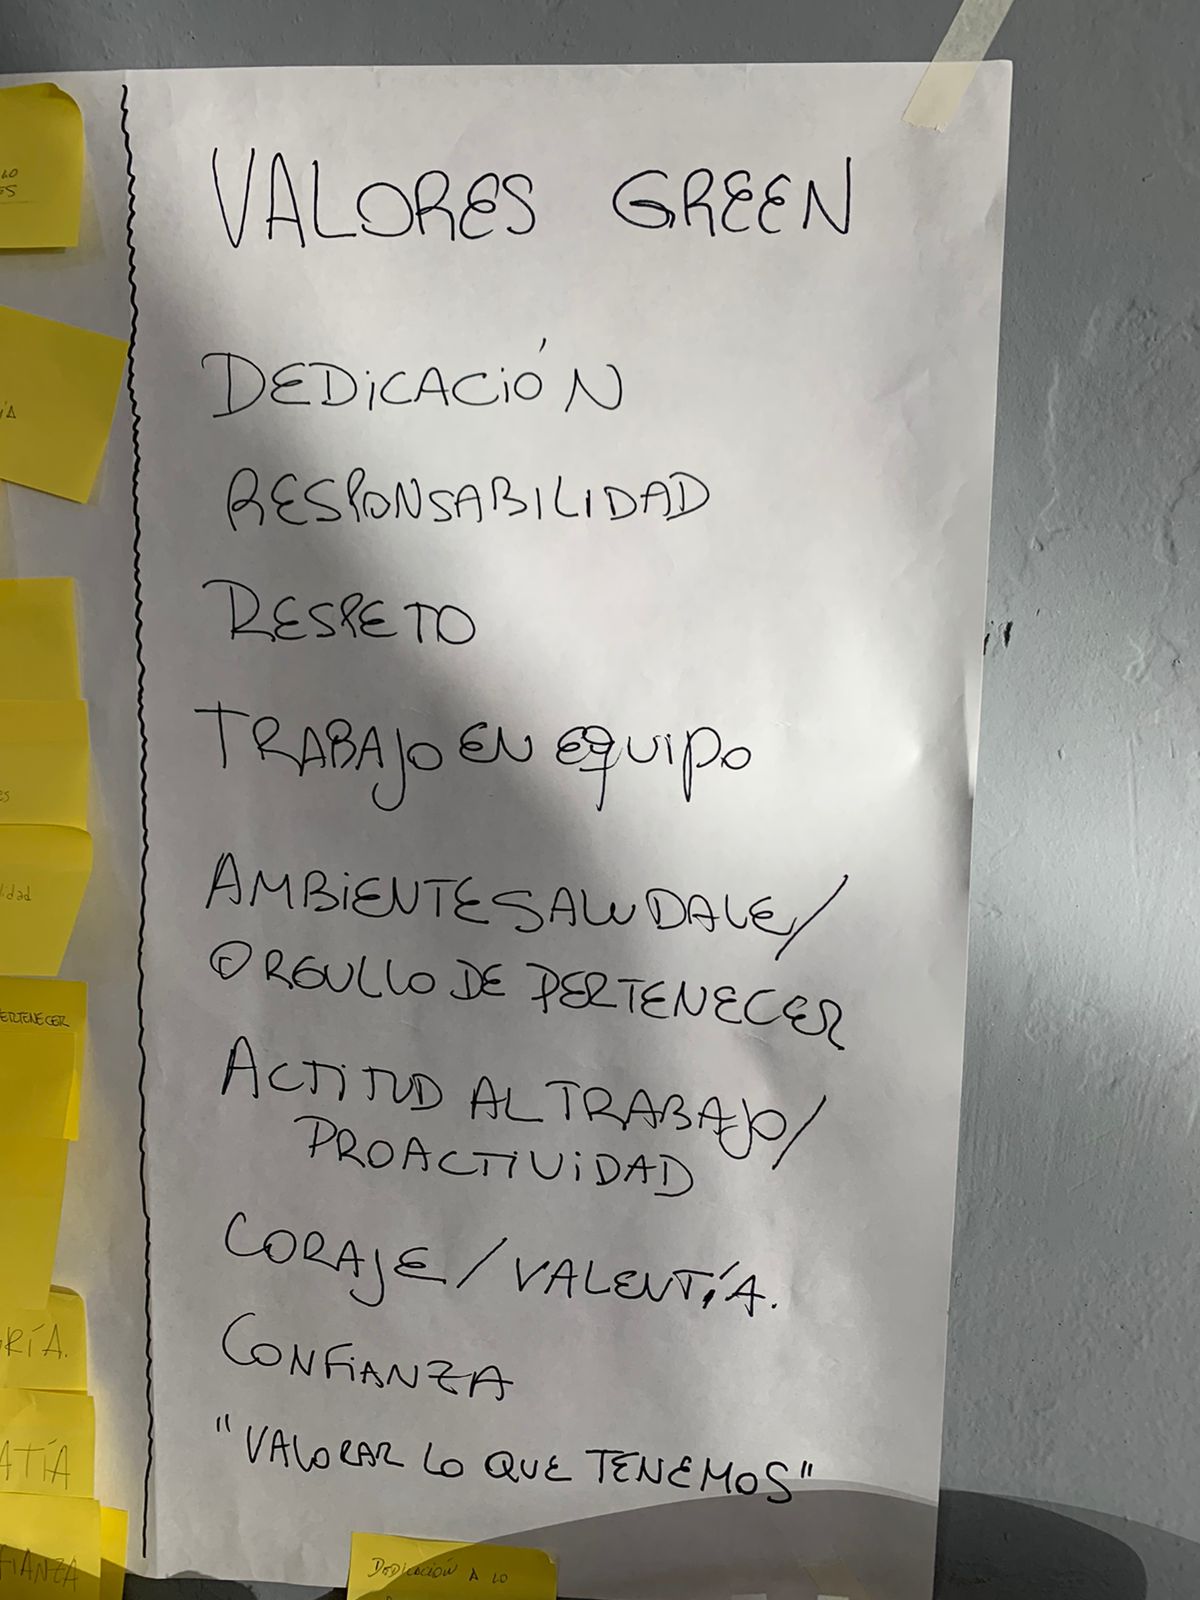 VALORES GREEN
DEDICACIÓN
RESPONSABILIDAD
RESPETO
TRABAJO EN EQUIPO
AMBIENTE SALUDALE/
ORGULLO DE PERTENECER
ACTITUD AL TRABAJO/
PROACTIVIDAD
CORAJE / VALENTÍA.
CONFIANZA
"VALORAR LO QUE TENEMOS"
LO
ES
ÍA
es
lidad
ERTENECER
RÍA.
ATÍA
FIANZA
DEDICACIÓN A LO